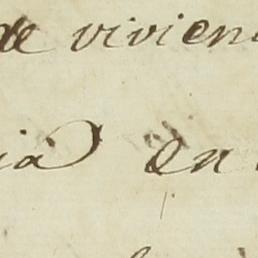 de vivien
ia en